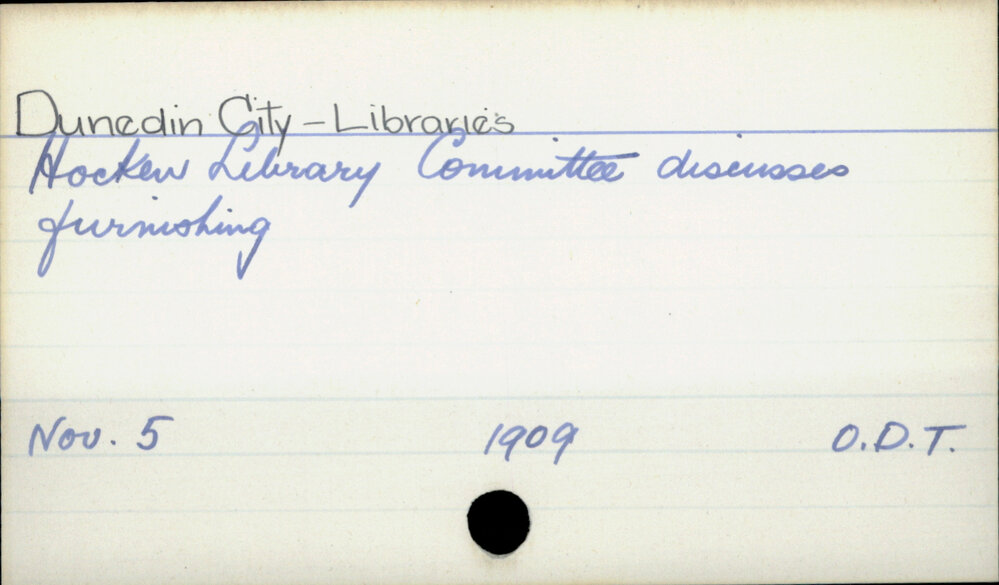 Dunedin City - Libraries
Hocken Library Committee discusses
furnishing
Nov. 5 1909 O.D.T.